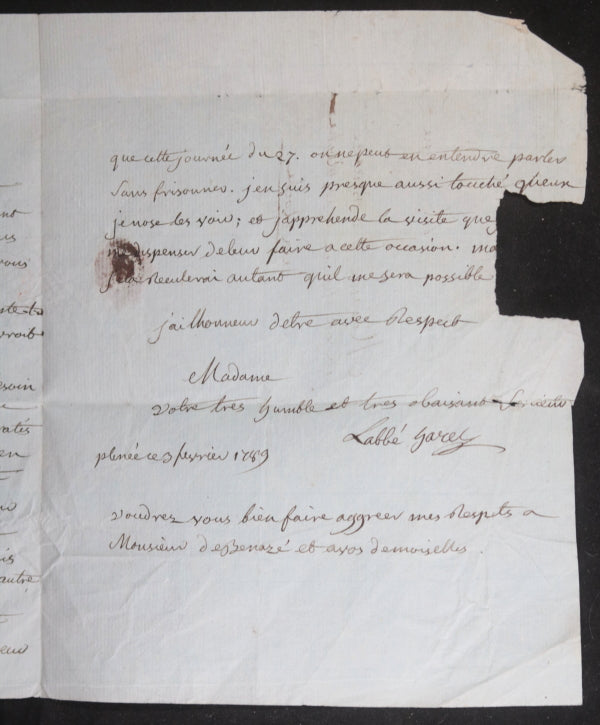 que cette journée du 27. on ne peut en entendre parler
sans frisonner. jen suis presque aussi touché queux
je nose les voir; et j'apprehende la visite que j
dispenser de leur faire a cette occasion. ma
je la Reculerai autant quil me sera possible
j'ai lhonneur detre avec Respect
Madame
votre tres humble et tres obaisant Serviteur
Labbé
plenée ce 3 fevrier 1789
voudrez vous bien faire aggreer mes Respets a
Monsieur de Benazé et a vos demoiselles.
vous
autre